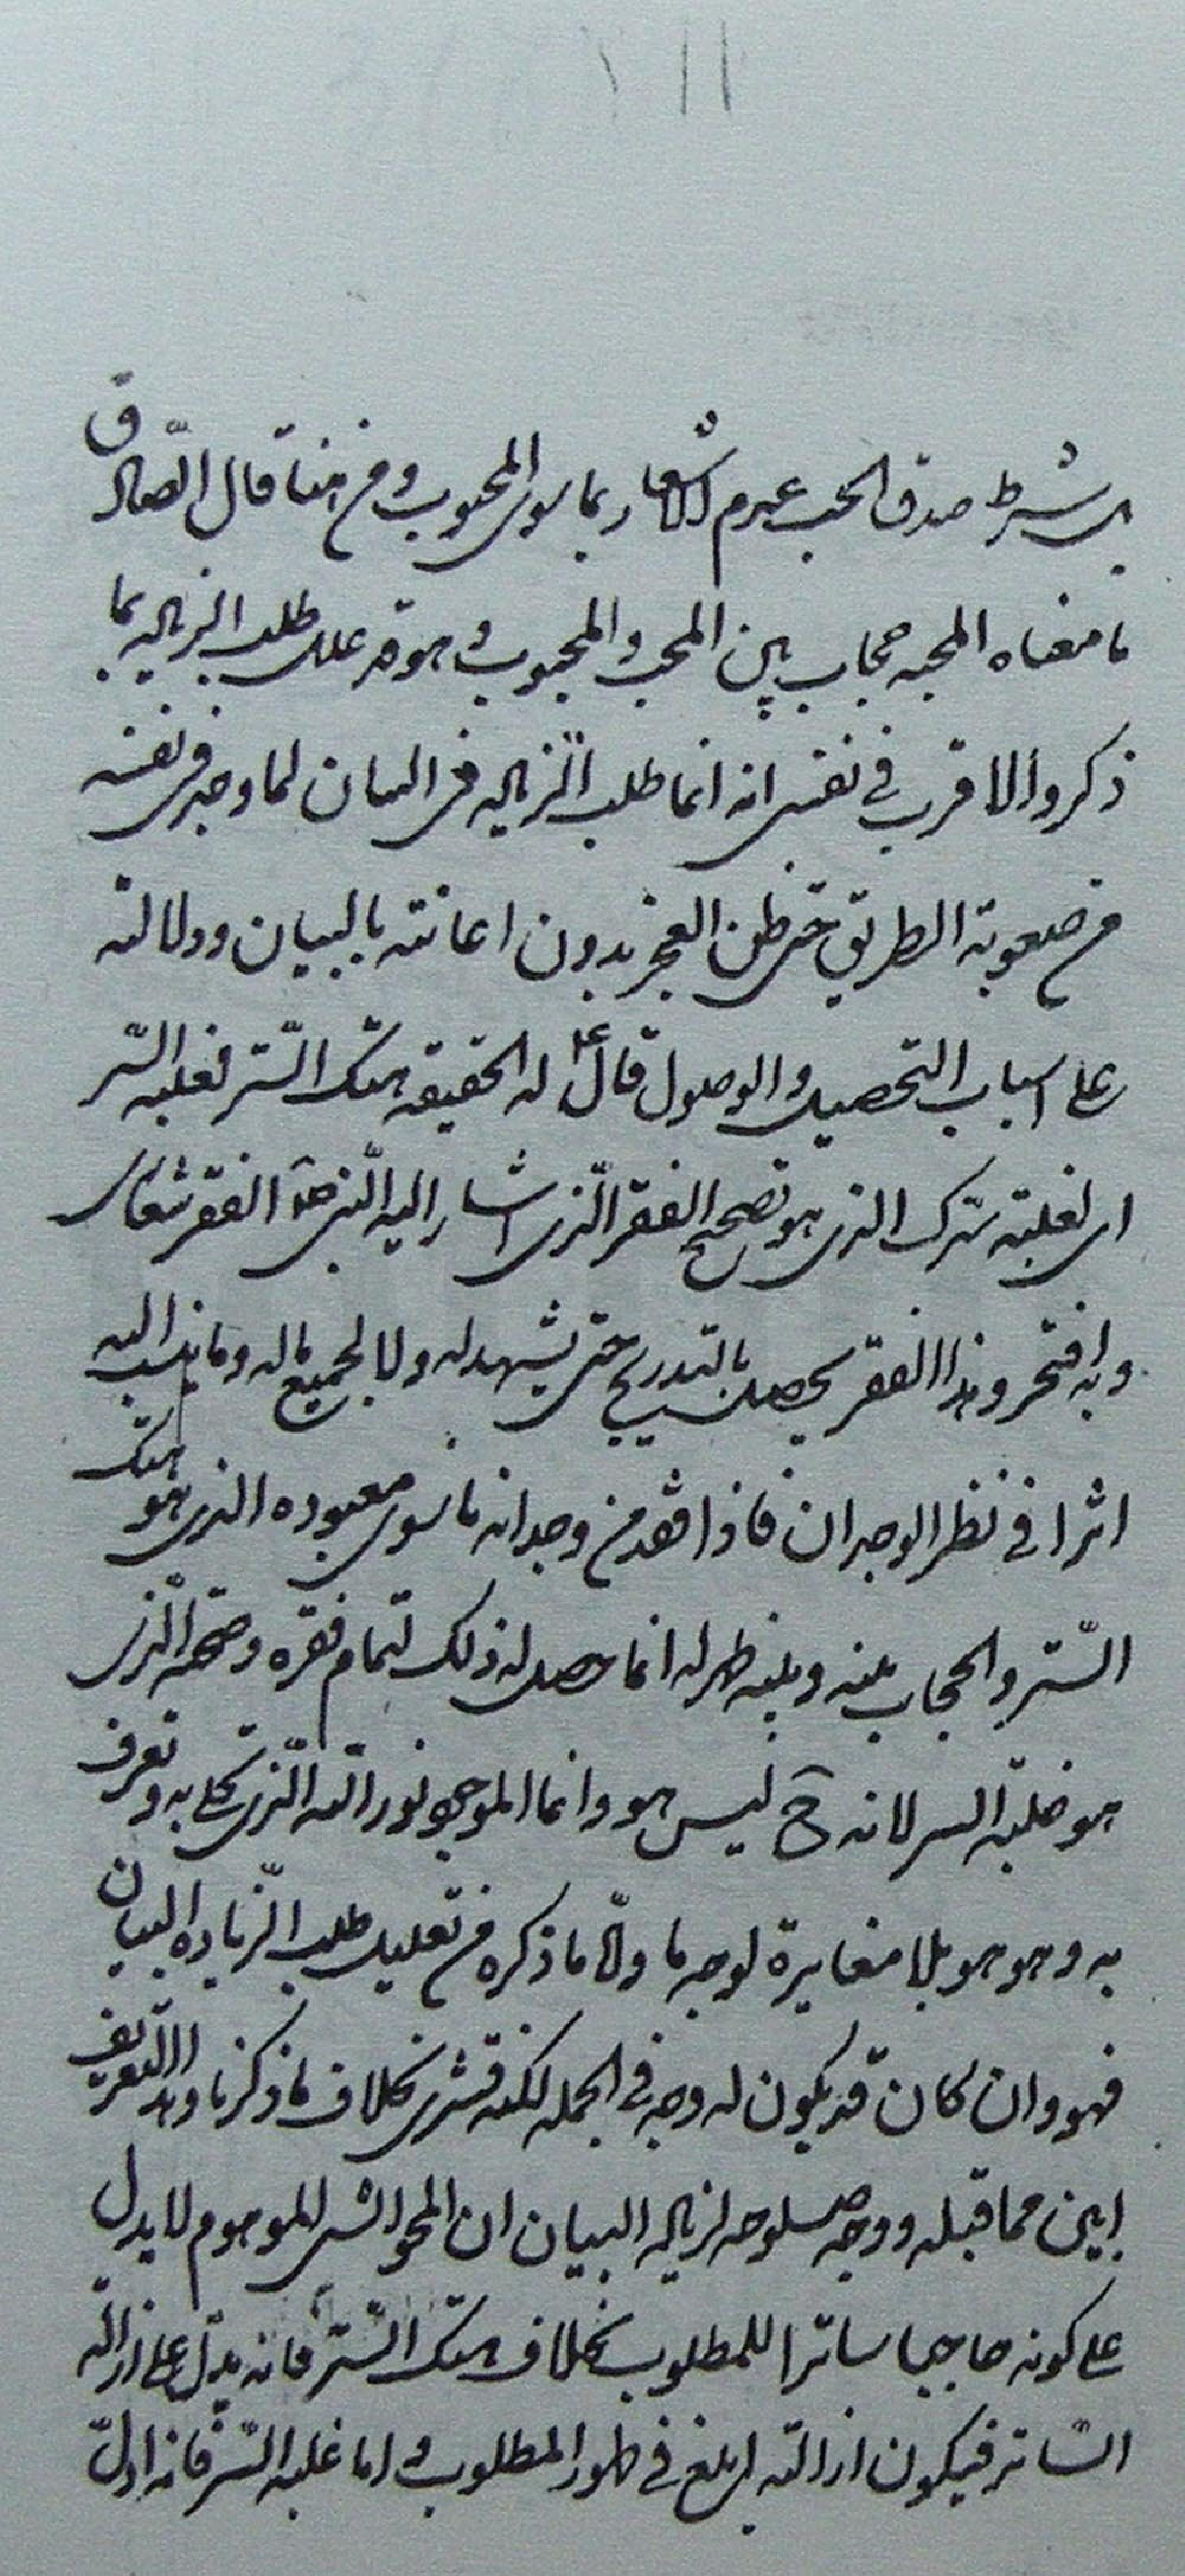 بل شرط صدق الحب عدم الاشعار بما سوى المحبوب ومن هنا قال الصادق
ما معناه المحبة حجاب بين المحب والمحبوب وهو قد علل طلب الزيادة بما
ذكر والاقرب في نفسي انه انما طلب الزيادة في البيان لما وجد في نفسه
من صعوبة الطريق حتى ظن العجز بدون اعانته بالبيان ودلالته
على اسباب التحصيل والوصول قال ع له الحقيقه هتك الستر لغلبه السر
اى لغلبته سرك الذى هو تصحيح الفقر الذى اشار اليه النبي ص الفقر شعارى
وبه افتخر وهذا الفقر يحصل بالتدريج حتى يشهد له ولا لجميع ماله وما ينسب اليه
اثرا في نظر الوجدان فاذا فقد من وجدانه ما سوى معبوده الذى هو هتك
الستر والحجاب بينه وبينه ظهر له انما حصل له ذلك لتمام فقره وصحته الذى
هو غلبة السر لانه ح ليس هو وانما الموجود نور الله الذى تجلى به وتعرف
به وهو هو بلا مغايرة لوجه ما واما ما ذكره من تعليل طلب الزيادة البيان
فهو وان كان قد يكون له وجه في الجمله لكنه قشرى بخلاف ما ذكرنا وهذا التعريف
ابين مما قبله ووجه صلوحه لزيادة البيان ان المحو الشى الموهوم لا يدل
على كونه حاجبا ساترا للمطلوب بخلاف هتك الستر فانه يدل على ازالة
الساتر فيكون ازالته ابلغ في ظهور المطلوب واما غلبه السر فانه ادل